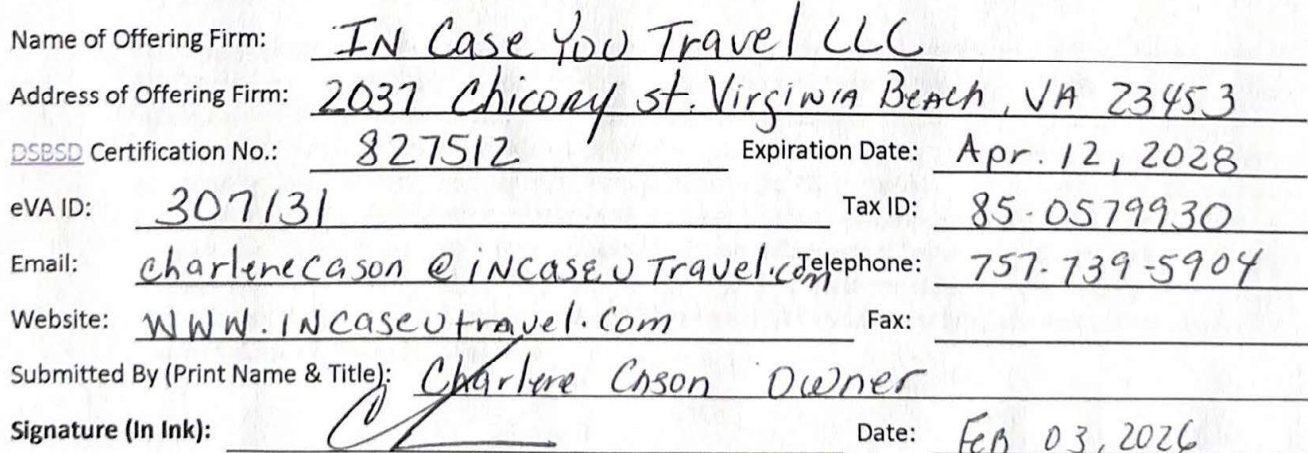 Name of Offering Firm: IN Case You Travel LLC
Address of Offering Firm: 2037 Chicory st. Virginia Beach, VA 23453
DSBSD Certification No.: 827512 Expiration Date: Apr. 12, 2028
eVA ID: 307131 Tax ID: 85-0579930
Email: charlenecason@incaseuTravel.com Telephone: 757-739-5904
Website: WWW.incaseutravel.com Fax:
Submitted By (Print Name & Title): Charlene Cason Owner
Signature (In Ink): Date: Feb 03, 2026